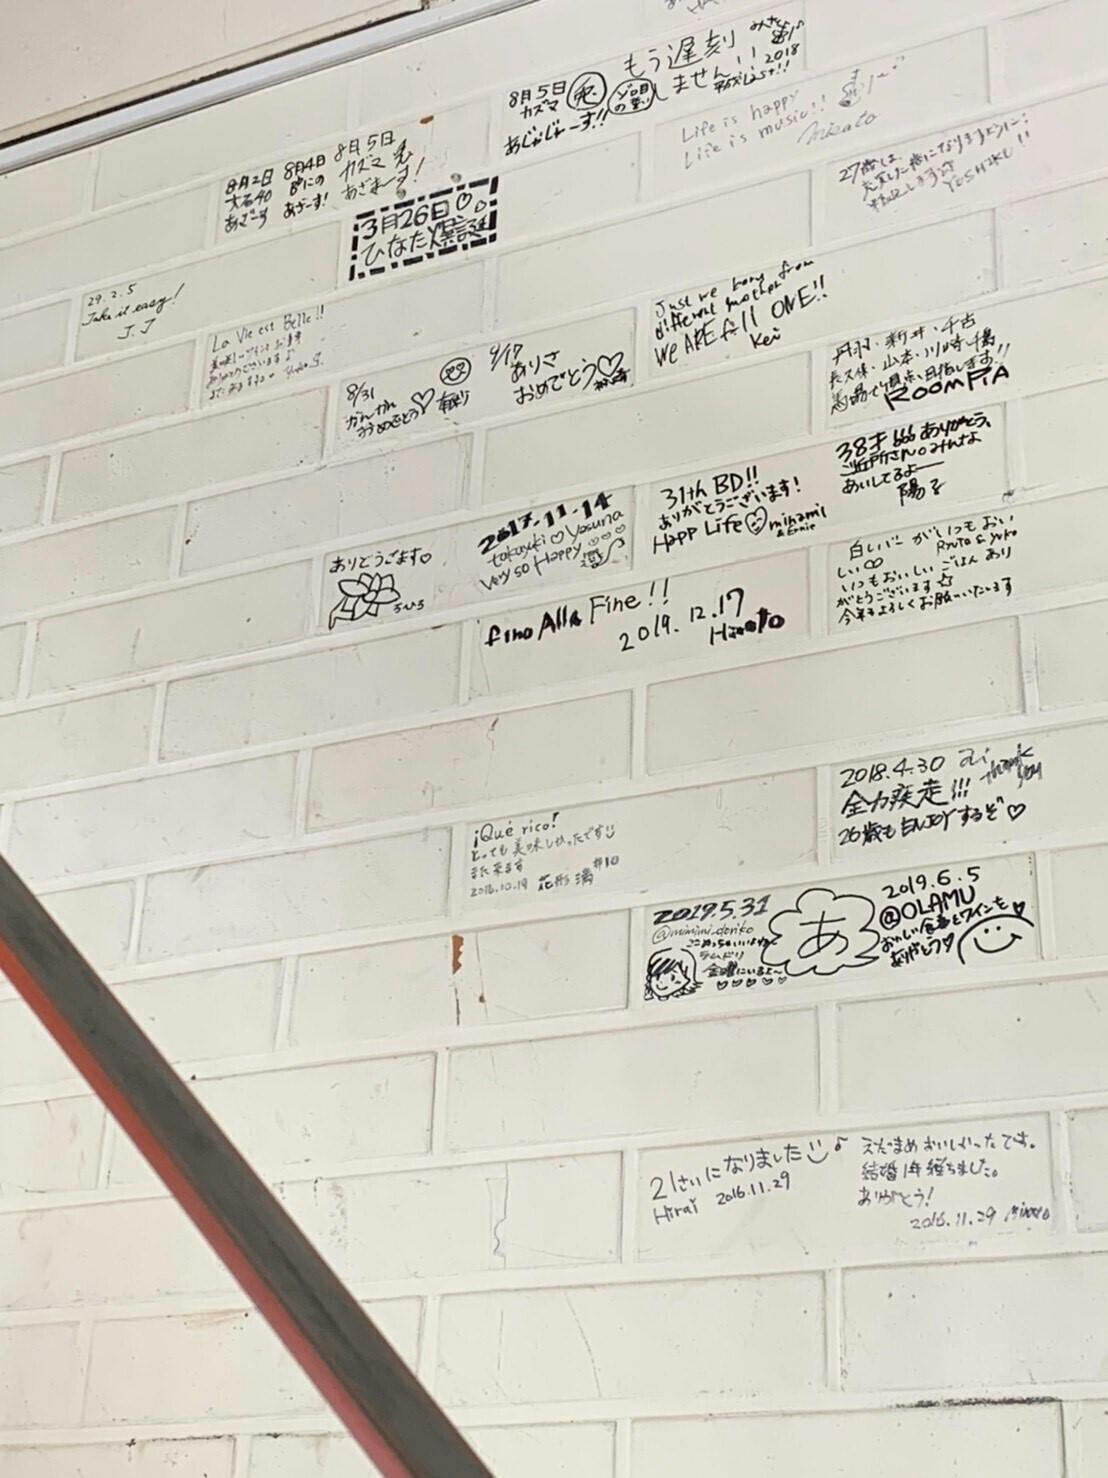 8月5日
カズマ
もう遅刻
しません!!
2018
あじゃじゃーす!!
Life is happy
Life is music!!
8月2日
大石40
あざーす
8月4日
あざーす!
8月5日
カズマ
あざまーす!
3月26日♡。
ひなた爆誕
27歳は、
YOSHIKI!!
29.2.5
Take it easy!
J.J
La Vie est Belle!!
ありがとうございます♪
Just we born from
different mother
We ARE All ONE!!
Kei
8/31
おめでとう♡
9/17
ありさ
おめでとう♡
丹羽・新井・千古
長久保・山本・川崎・千島
馬場で頂点目指します!!
ROOM PIA
38才 666 ありがとう。
ご近所さんのみんな
あいしてるよー
陽子
31th BD!!
ありがとうございます!
Happ Life minami
2017.11.14
takayuki♡yasuna
Very so Happy
ありどうごます♡
ちひろ
白いバーがいつもおい
しい
Ryuto & yuko
いつもおいしいごはんあり
がとうございます☆
今年もよろしくお願いいたします
fino Alla Fine!!
2019.12.17
Hiroto
2018.4.30
thank
you
全力疾走!!!
26歳もENJOYするぞ♡
¡Qué rico!
とっても美味しかったです
また来ます
2016.10.19 花形 #10
2019.5.31
@mimimi_doriko
ここめっちゃいいよね
ラムドリ
金曜にいるよ〜
♡♡♡♡♡
あ
2019.6.5
@OLAMU
おいしい食事とワインを♥
ありがとう♡
21さいになりました♪
Hirai 2016.11.29
えだまめおいしかったです。
結婚1年経ちました。
ありがとう!
2016.11.29